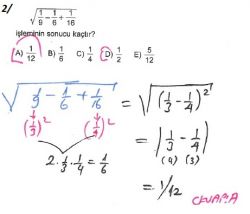 2/
√(1/9 - 1/6 + 1/16)
işleminin sonucu kaçtır?
A) 1/12 B) 1/6 C) 1/4 D) 1/2 E) 5/12
√(1/9 - 1/6 + 1/16) = √((1/3 - 1/4)²)
(1/3)² (1/4)² = |1/3 - 1/4|
(4) (3)
2·1/3·1/4 = 1/6
= 1/12
CEVAP A